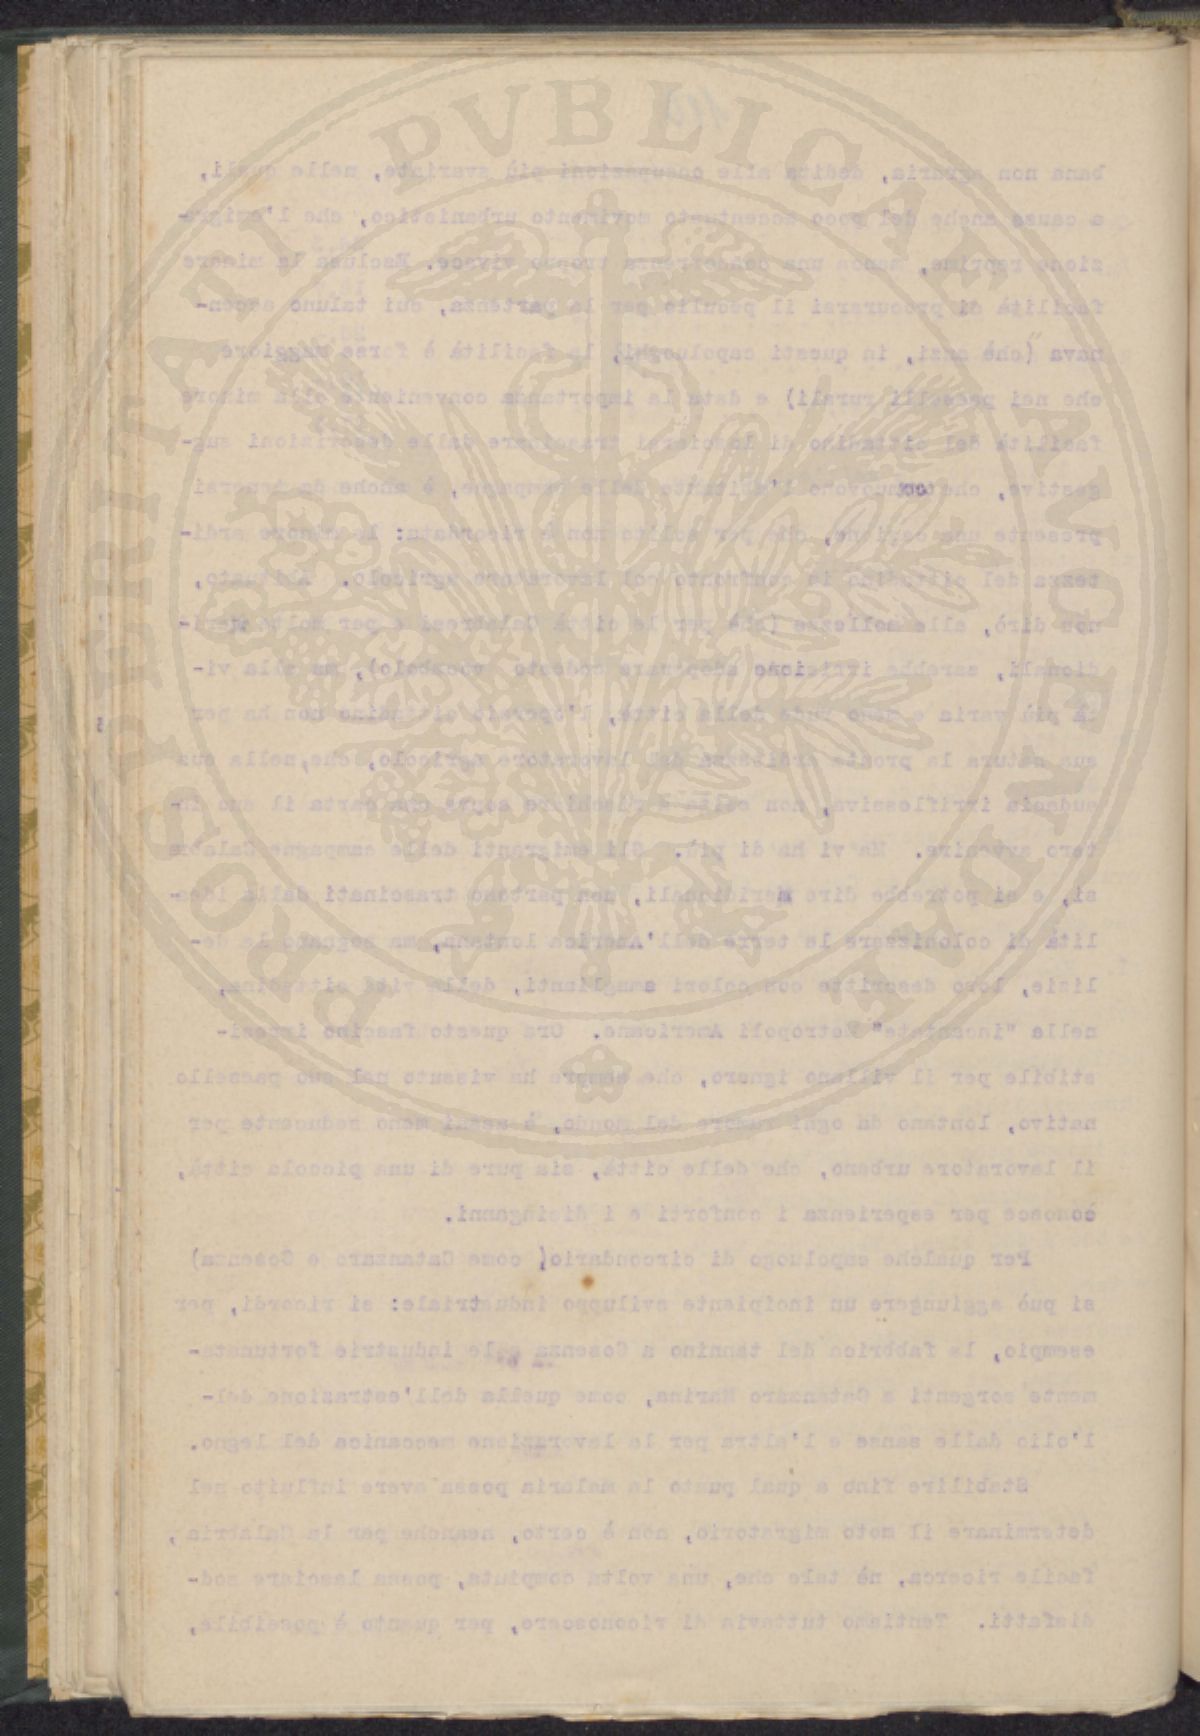 PROSPERITATI PVBLICAE AVGENDAE
bana non agraria, dedita alle occupazioni più svariate, nelle quali,
a causa anche del poco accentuato movimento urbanistico, che l'emigra-
zione reprime, manca una concorrenza troppo vivace. Esclusa la minore
facilità di procurarsi il peculio per la partenza, cui taluno accen-
nava (chè anzi, in questi capoluoghi, la facilità è forse maggiore
che nei paeselli rurali) e data la importanza conveniente alla minore
facilità del cittadino di lasciarsi trascinare dalle descrizioni sug-
gestive, che commuovono l'abitante delle campagne, è anche da tenersi
presente una cagione, che per solito non è ricordata: la minore ardi-
tezza del cittadino in confronto col lavoratore agricolo. Abituato,
non dirò, alle mollezze (chè per le città Calabresi e per molte meri-
dionali, sarebbe irrisione adoperare codesto vocabolo), ma alla vi-
ta più varia e meno rude della città, l'operaio cittadino non ha per
sua natura la pronta arditezza del lavoratore agricolo, che, nella sua
audacia irriflessiva, non esita a rischiare sopra una carta il suo in-
tero avvenire. Ma vi ha di più. Gli emigranti delle campagne Calabre
si, e si potrebbe dire Meridionali, non partono trascinati dalla idea-
lità di colonizzare le terre dell'America lontana, ma sognano le de-
lizie, loro descritte con colori smaglianti, della vita cittadina,
nelle "incantate" Metropoli Americane. Ora questo fascino irresi-
stibile per il villano ignaro, che sempre ha vissuto nel suo paesello
nativo, lontano da ogni rumore del mondo, è assai meno seducente per
il lavoratore urbano, che delle città, sia pure di una piccola città,
conosce per esperienza i conforti e i disinganni.
Per qualche capoluogo di circondario( come Catanzaro e Cosenza)
si può aggiungere un incipiente sviluppo industriale: si ricordi, per
esempio, la fabbrica del tannino a Cosenza e le industrie fortunata-
mente sorgenti a Catanzaro Marina, come quella dell'estrazione del-
l'olio dalle sanse e l'altra per la lavorazione meccanica del legno.
Stabilire fino a qual punto la malaria possa avere influito nel
determinare il moto migratorio, non è certo, neanche per la Calabria,
facile ricerca, nè tale che, una volta compiuta, possa lasciare sod-
disfatti. Tentiamo tuttavia di riconoscere, per quanto è possibile,